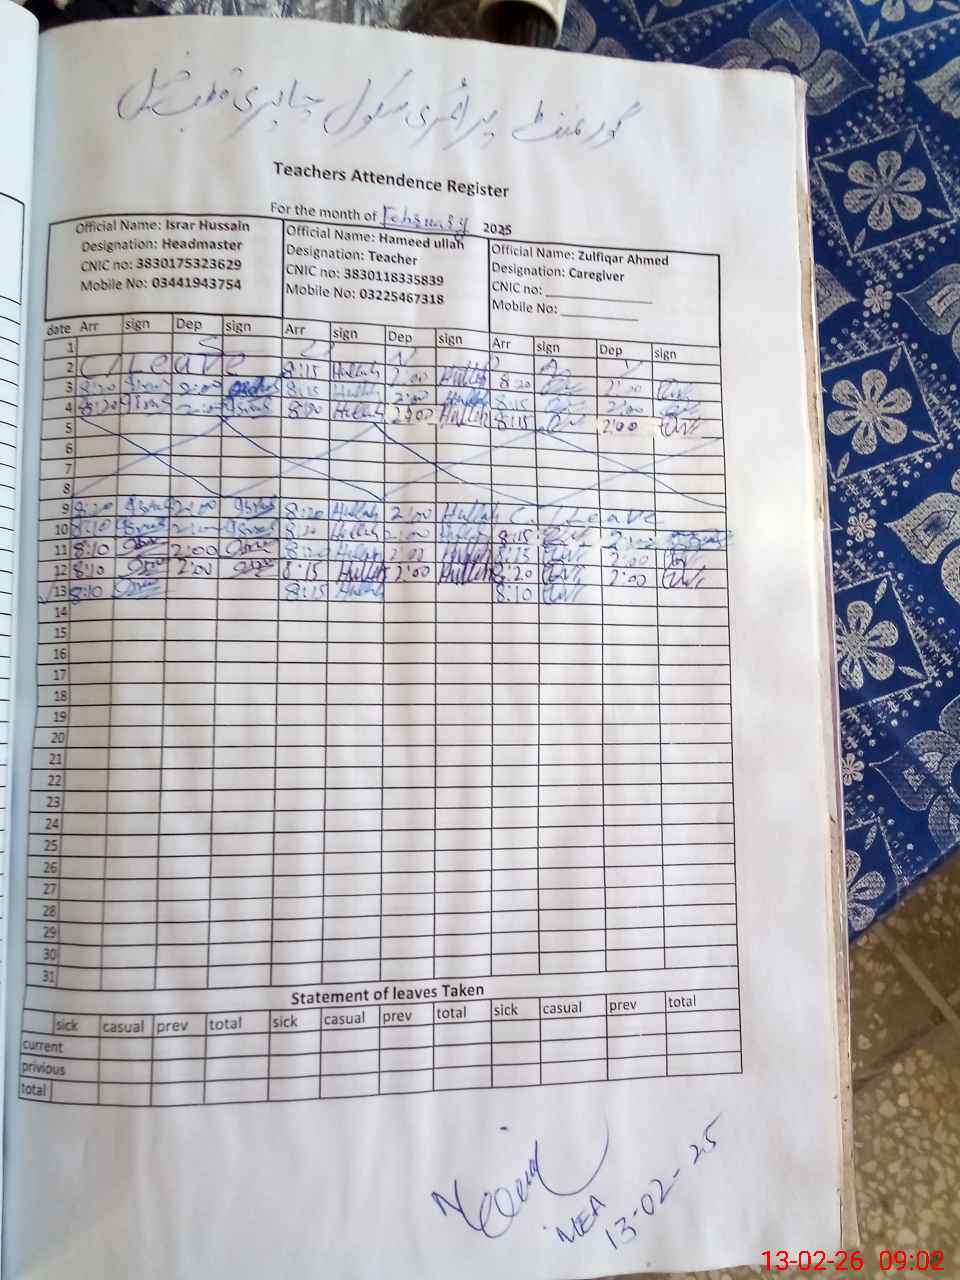 گورنمنٹ پرائمری سکول چاپری
Teachers Attendence Register
For the month of February 2025
Official Name: Israr Hussain
Designation: Headmaster
CNIC no: 3830175323629
Mobile No: 03441943754
Official Name: Hameed ullah
Designation: Teacher
CNIC no: 3830118335839
Mobile No: 03225467318
Official Name: Zulfiqar Ahmed
Designation: Caregiver
CNIC no:
Mobile No:
date Arr sign Dep sign Arr sign Dep sign Arr sign Dep sign
1
2 C/Leave 8:15 Hullah 2:00 Hullah 8:20 2:00
3 8:20 Israr 2:00 8:15 Hullah 2:00 Hullah 8:15 2:00
4 8:20 Israr 2:00 Israr 8:20 Hullah 2:00 Hullah 8:15 2:00
5
6
7
8
9 8:20 Israr 2:00 Israr 8:20 Hullah 2:00 Hullah C/Leave
10 8:10 Israr 2:00 Israr 8:20 Hullah 2:00 Hullah 8:15 2:00
11 8:10 2:00 8:20 Hullah 2:00 Hullah 8:15 2:00
12 8:10 2:00 8:15 Hullah 2:00 Hullah 8:20 2:00
13 8:10 8:15 Hullah 8:10
14
15
16
17
18
19
20
21
22
23
24
25
26
27
28
29
30
31
Statement of leaves Taken
sick casual prev total sick casual prev total sick casual prev total
current
privious
total
MEA
13-02-25
13-02-26 09:02